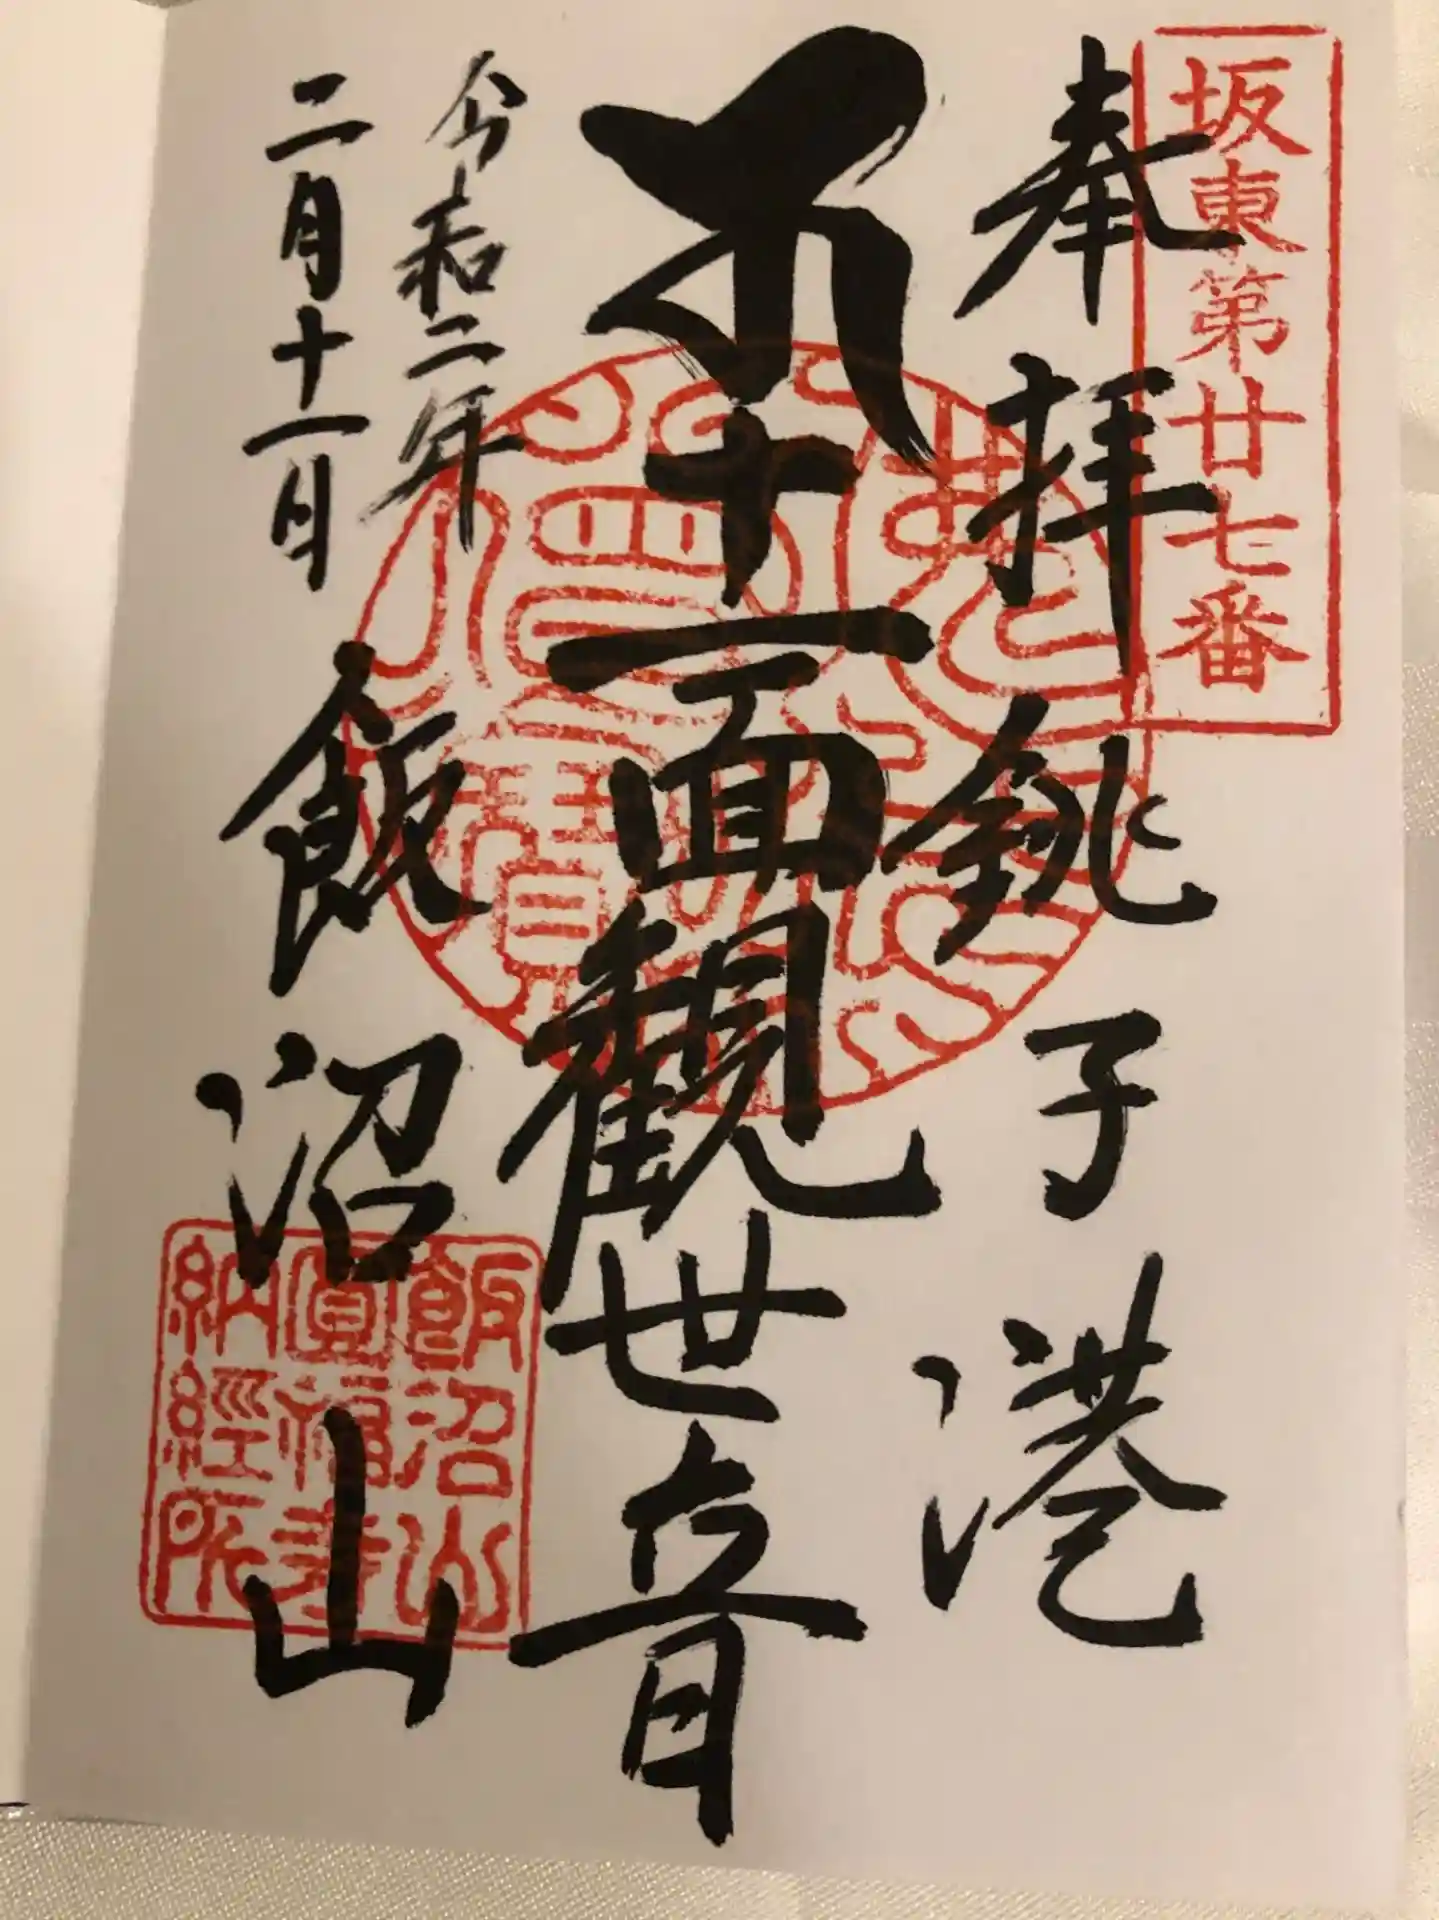 坂東第廿七番
奉拝 銚子港
十一面観世音
令和二年
二月十一日
飯沼山
飯沼山
圓福寺
納経所